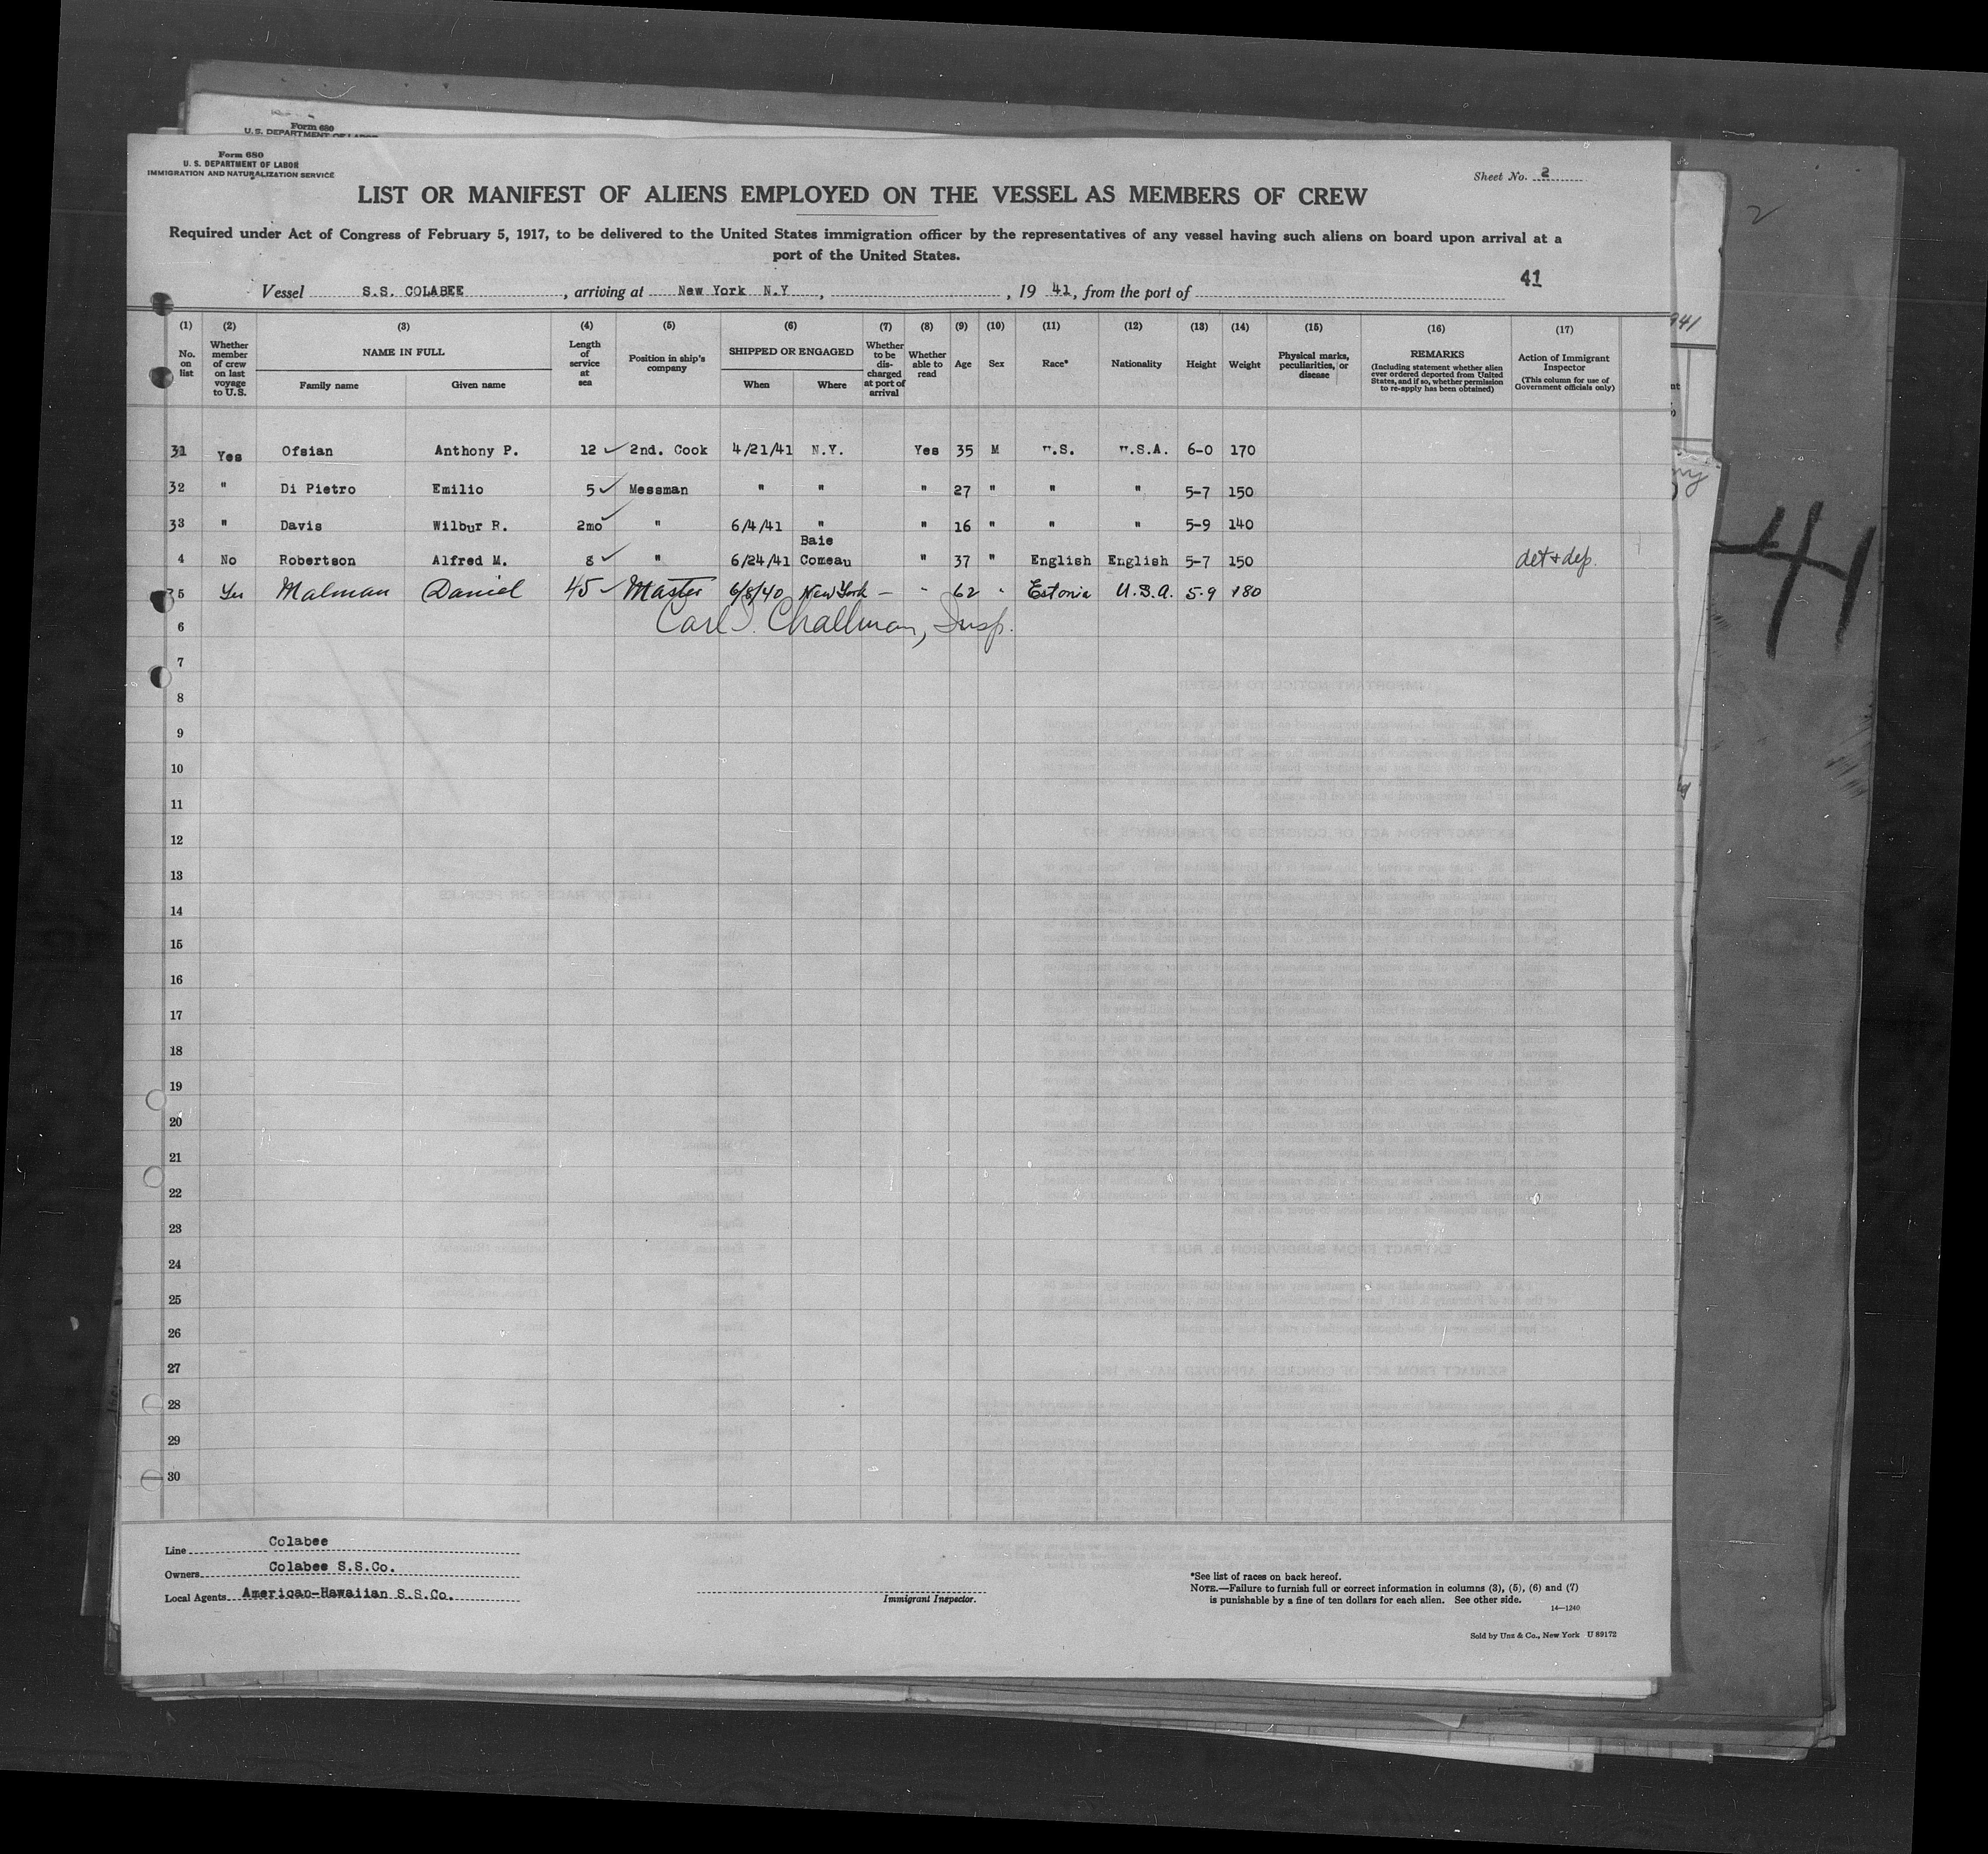 Form 680
U. S. DEPARTMENT OF LABOR
Form 680
U. S. DEPARTMENT OF LABOR
IMMIGRATION AND NATURALIZATION SERVICE
Sheet No. 2
LIST OR MANIFEST OF ALIENS EMPLOYED ON THE VESSEL AS MEMBERS OF CREW
Required under Act of Congress of February 5, 1917, to be delivered to the United States immigration officer by the representatives of any vessel having such aliens on board upon arrival at a
port of the United States.
41
Vessel S.S. COLABEE, arriving at New York N.Y, , 19 41, from the port of
(1) (2) (3) (4) (5) (6) (7) (8) (9) (10) (11) (12) (13) (14) (15) (16) (17)
No. on list
Whether member of crew on last voyage to U.S.
NAME IN FULL
Family name Given name
Length of service at sea
Position in ship's company
SHIPPED OR ENGAGED
When Where
Whether to be discharged at port of arrival
Whether able to read
Age
Sex
Race*
Nationality
Height
Weight
Physical marks, peculiarities, or disease
REMARKS
(Including statement whether alien ever ordered deported from United States, and if so, whether permission to re-apply has been obtained)
Action of Immigrant Inspector
(This column for use of Government officials only)
31 Yes Ofsian Anthony P. 12 ✓ 2nd. Cook 4/21/41 N.Y. Yes 35 M U.S. U.S.A. 6-0 170
32 " Di Pietro Emilio 5 ✓ Messman " " " 27 " " " 5-7 150
33 " Davis Wilbur R. 2mo ✓ " 6/4/41 " " 16 " " " 5-9 140
4 No Robertson Alfred M. 8 ✓ " 6/24/41 Baie Comeau " 37 " English English 5-7 150 det & dep.
35 Yes Malman Daniel 45 ✓ Master 6/8/40 New York — " 62 " Estonia U.S.A. 5-9 180
6 Carl J. Challman, Insp.
7
8
9
10
11
12
13
14
15
16
17
18
19
20
21
22
23
24
25
26
27
28
29
30
Line Colabee
Owners Colabee S.S.Co.
Local Agents American-Hawaiian S.S.Co.
Immigrant Inspector.
*See list of races on back hereof.
NOTE.—Failure to furnish full or correct information in columns (3), (5), (6) and (7)
is punishable by a fine of ten dollars for each alien. See other side.
14—1240
Sold by Unz & Co., New York U 89172
2
41